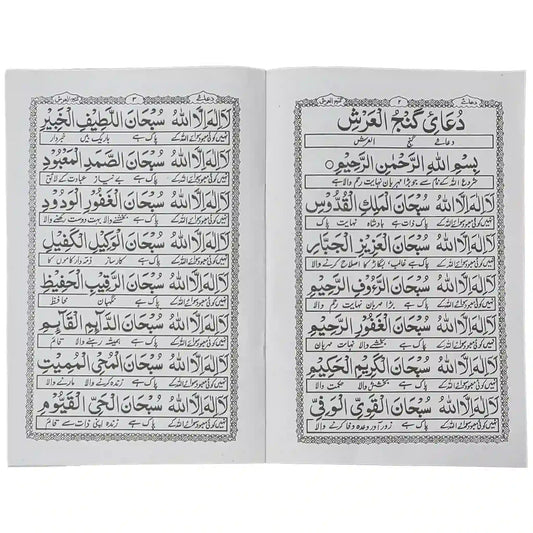 دعائے گنج العرش
۲
دُعَائِ گَنْجُ الْعَرْشِ
دعائے گنج العرش
بِسْمِ اللهِ الرَّحْمٰنِ الرَّحِيْمِ
شروع اللہ کے نام سے جو بڑا مہربان نہایت رحم والا ہے
لَا اِلٰهَ اِلَّا اللهُ سُبْحَانَ الْمَلِكِ الْقُدُّوْسِ
نہیں کوئی معبود سوائے اللہ کے پاک ذات ہے بادشاہ نہایت پاک
لَا اِلٰهَ اِلَّا اللهُ سُبْحَانَ الْعَزِيْزِ الْجَبَّارِ
نہیں کوئی معبود سوائے اللہ کے پاک ہے غالب، بگاڑ کا اصلاح کرنے والا
لَا اِلٰهَ اِلَّا اللهُ سُبْحَانَ الرَّءُوْفِ الرَّحِيْمِ
نہیں کوئی معبود سوائے اللہ کے پاک ہے بڑا مہربان نہایت رحم والا
لَا اِلٰهَ اِلَّا اللهُ سُبْحَانَ الْغَفُوْرِ الرَّحِيْمِ
نہیں کوئی معبود سوائے اللہ کے پاک ہے بخشنے والا نہایت مہربان
لَا اِلٰهَ اِلَّا اللهُ سُبْحَانَ الْكَرِيْمِ الْحَكِيْمِ
نہیں کوئی معبود سوائے اللہ کے پاک ہے بخشش والا حکمت والا
لَا اِلٰهَ اِلَّا اللهُ سُبْحَانَ الْقَوِيِّ الْوَفِيِّ
نہیں کوئی معبود سوائے اللہ کے پاک ہے زور آور وعدہ وفا کرنے والا
دعائے گنج العرش
۳
لَا اِلٰهَ اِلَّا اللهُ سُبْحَانَ اللَّطِيْفِ الْخَبِيْرِ
نہیں کوئی معبود سوائے اللہ کے پاک ہے باریک بیں خبردار
لَا اِلٰهَ اِلَّا اللهُ سُبْحَانَ الصَّمَدِ الْمَعْبُوْدِ
نہیں کوئی معبود سوائے اللہ کے پاک ہے بے نیاز عبادت کے لائق
لَا اِلٰهَ اِلَّا اللهُ سُبْحَانَ الْغَفُوْرِ الْوَدُوْدِ
نہیں کوئی معبود سوائے اللہ کے پاک ہے بخشنے والا بہت دوست رکھنے والا
لَا اِلٰهَ اِلَّا اللهُ سُبْحَانَ الْوَكِيْلِ الْكَفِيْلِ
نہیں کوئی معبود سوائے اللہ کے پاک ہے کارساز ذمہ دار کاموں کا
لَا اِلٰهَ اِلَّا اللهُ سُبْحَانَ الرَّقِيْبِ الْحَفِيْظِ
نہیں کوئی معبود سوائے اللہ کے پاک ہے نگہبان محافظ
لَا اِلٰهَ اِلَّا اللهُ سُبْحَانَ الدَّآئِمِ الْقَآئِمِ
نہیں کوئی معبود سوائے اللہ کے پاک ہے ہمیشہ رہنے والا قائم
لَا اِلٰهَ اِلَّا اللهُ سُبْحَانَ الْمُحْيِ الْمُمِيْتِ
نہیں کوئی معبود سوائے اللہ کے پاک ہے زندہ کرنے والا مارنے والا
لَا اِلٰهَ اِلَّا اللهُ سُبْحَانَ الْحَيِّ الْقَيُّوْمِ
نہیں کوئی معبود سوائے اللہ کے پاک ہے زندہ اپنی ذات سے قائم